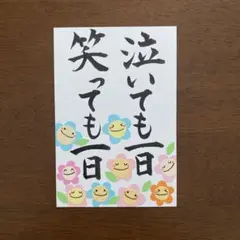 泣いても一日
笑っても一日